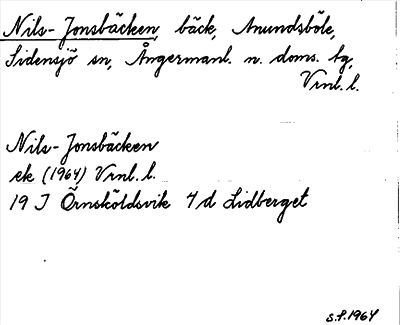 Nils-Jonsbäcken, bäck, Anundsböle,
Sidensjö sn, Ångermanl. n. doms. tg,
Vrnl. l.
Nils-Jonsbäcken
ek (1964) Vrnl. l.
19 J Örnsköldsvik 4 d Lidberget
s.f. 1964